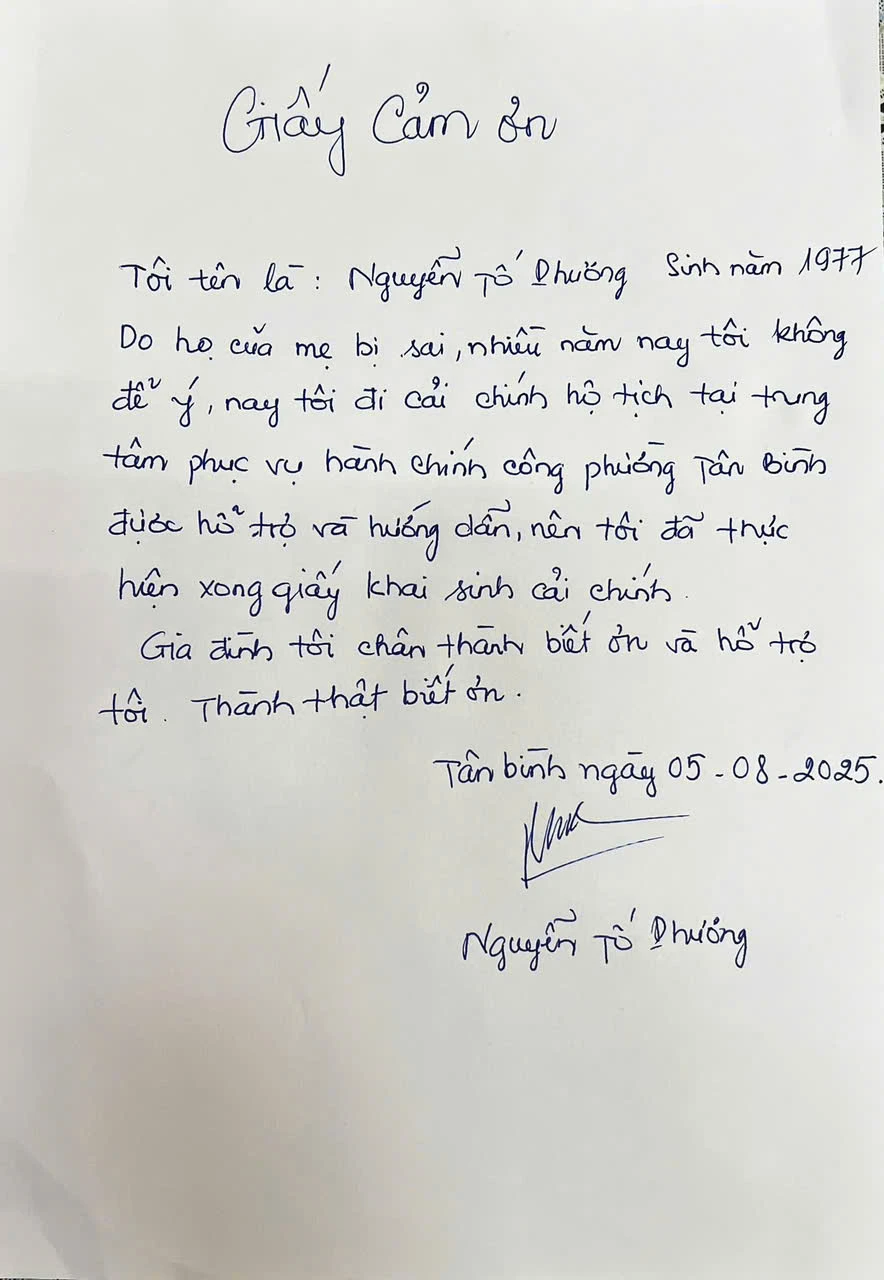 Giấy Cảm ơn
Tôi tên là : Nguyễn Tố Phương Sinh năm 1977
Do họ của mẹ bị sai, nhiều năm nay tôi không
để ý, nay tôi đi cải chính hộ tịch tại trung
tâm phục vụ hành chính công phường Tân Bình
được hỗ trợ và hướng dẫn, nên tôi đã thực
hiện xong giấy khai sinh cải chính.
Gia đình tôi chân thành biết ơn và hỗ trợ
tôi. Thành thật biết ơn.
Tân bình ngày 05-08-2025.
Nguyễn Tố Phương